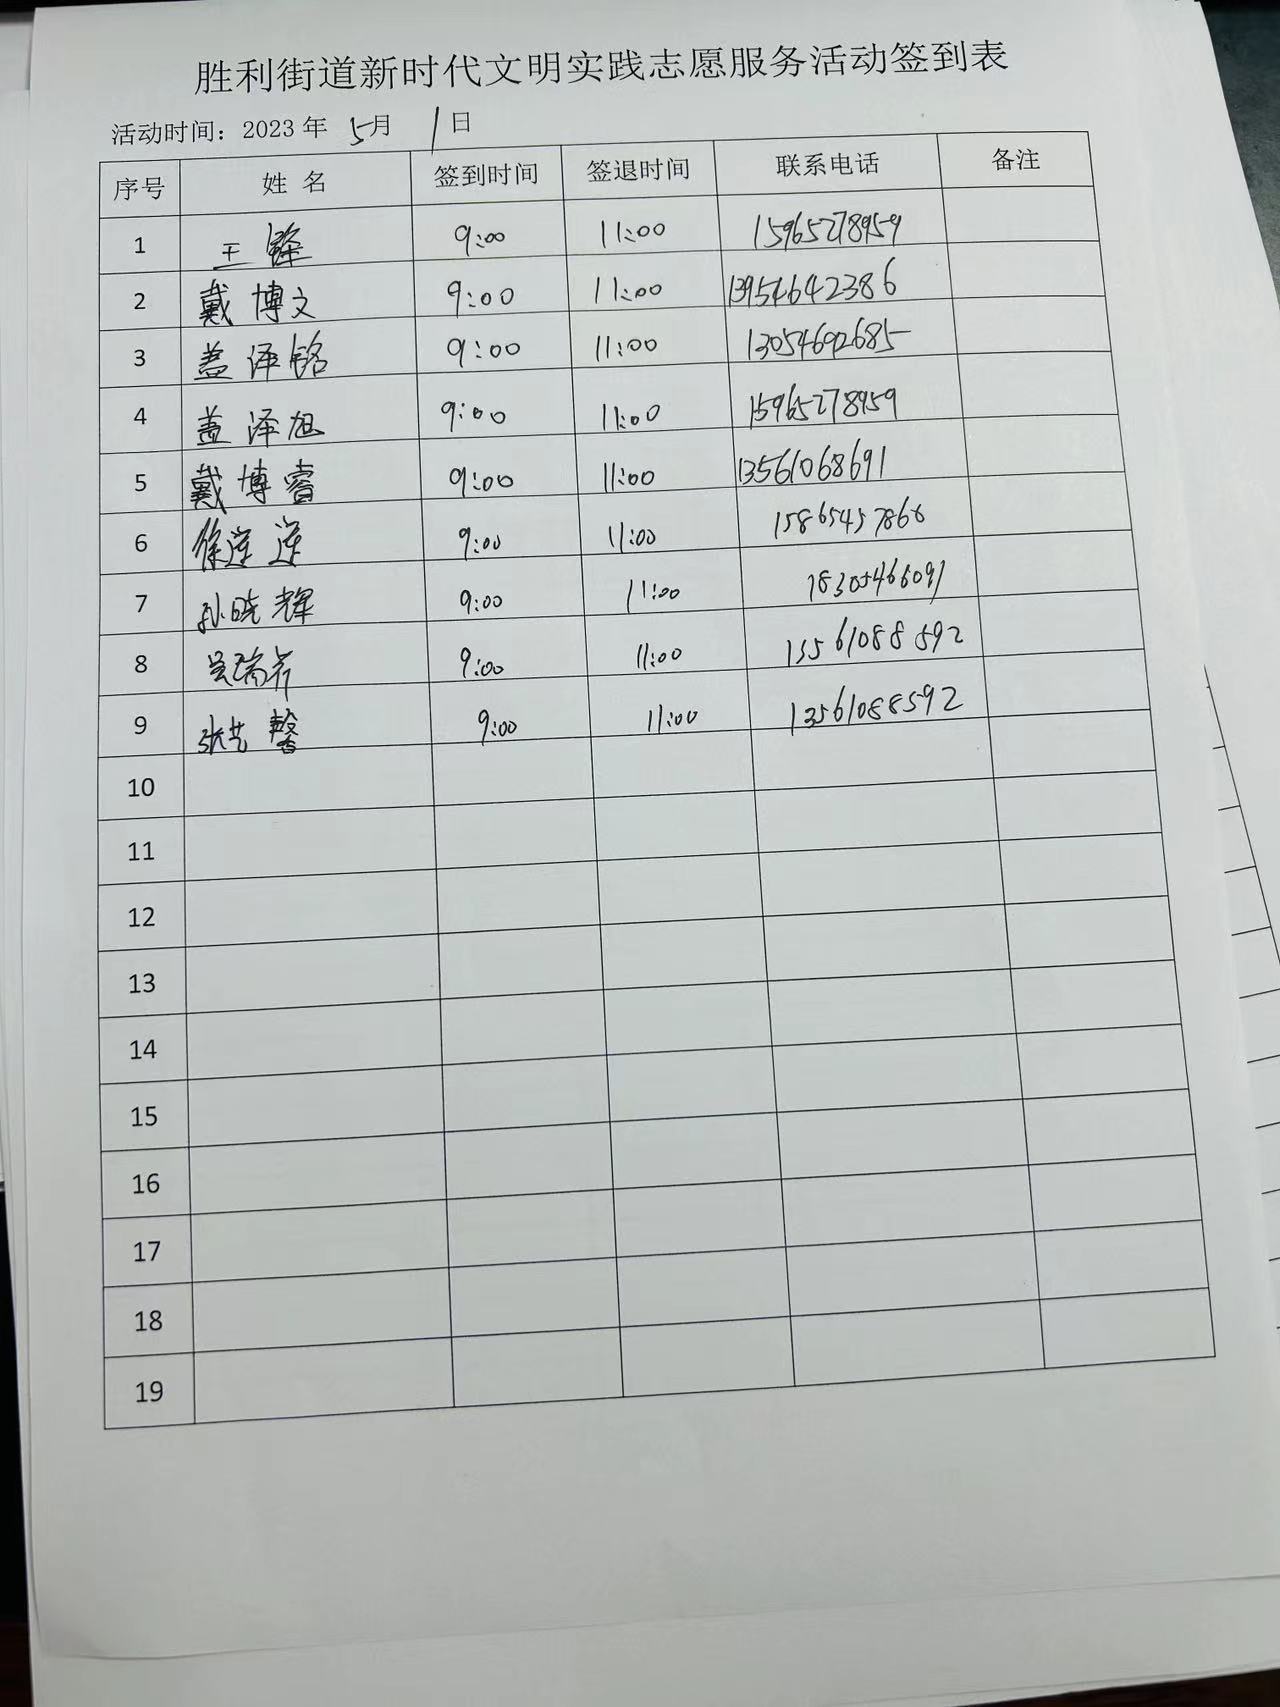 胜利街道新时代文明实践志愿服务活动签到表
活动时间：2023 年 5月 1日
序号 姓 名 签到时间 签退时间 联系电话 备注
1 王锋 9:00 11:00 15965278959
2 戴博文 9:00 11:00 13954642386
3 盖泽铭 9:00 11:00 13054692685
4 盖泽旭 9:00 11:00 15965278959
5 戴博睿 9:00 11:00 13561068691
6 徐莲莲 9:00 11:00 15865457866
7 孙晓辉 9:00 11:00 18305466091
8 9:00 11:00 13561088592
9 张艺馨 9:00 11:00 13561088592
10
11
12
13
14
15
16
17
18
19